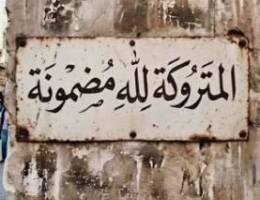 المَتَروكَة لِلّهِ مُضمُونَة